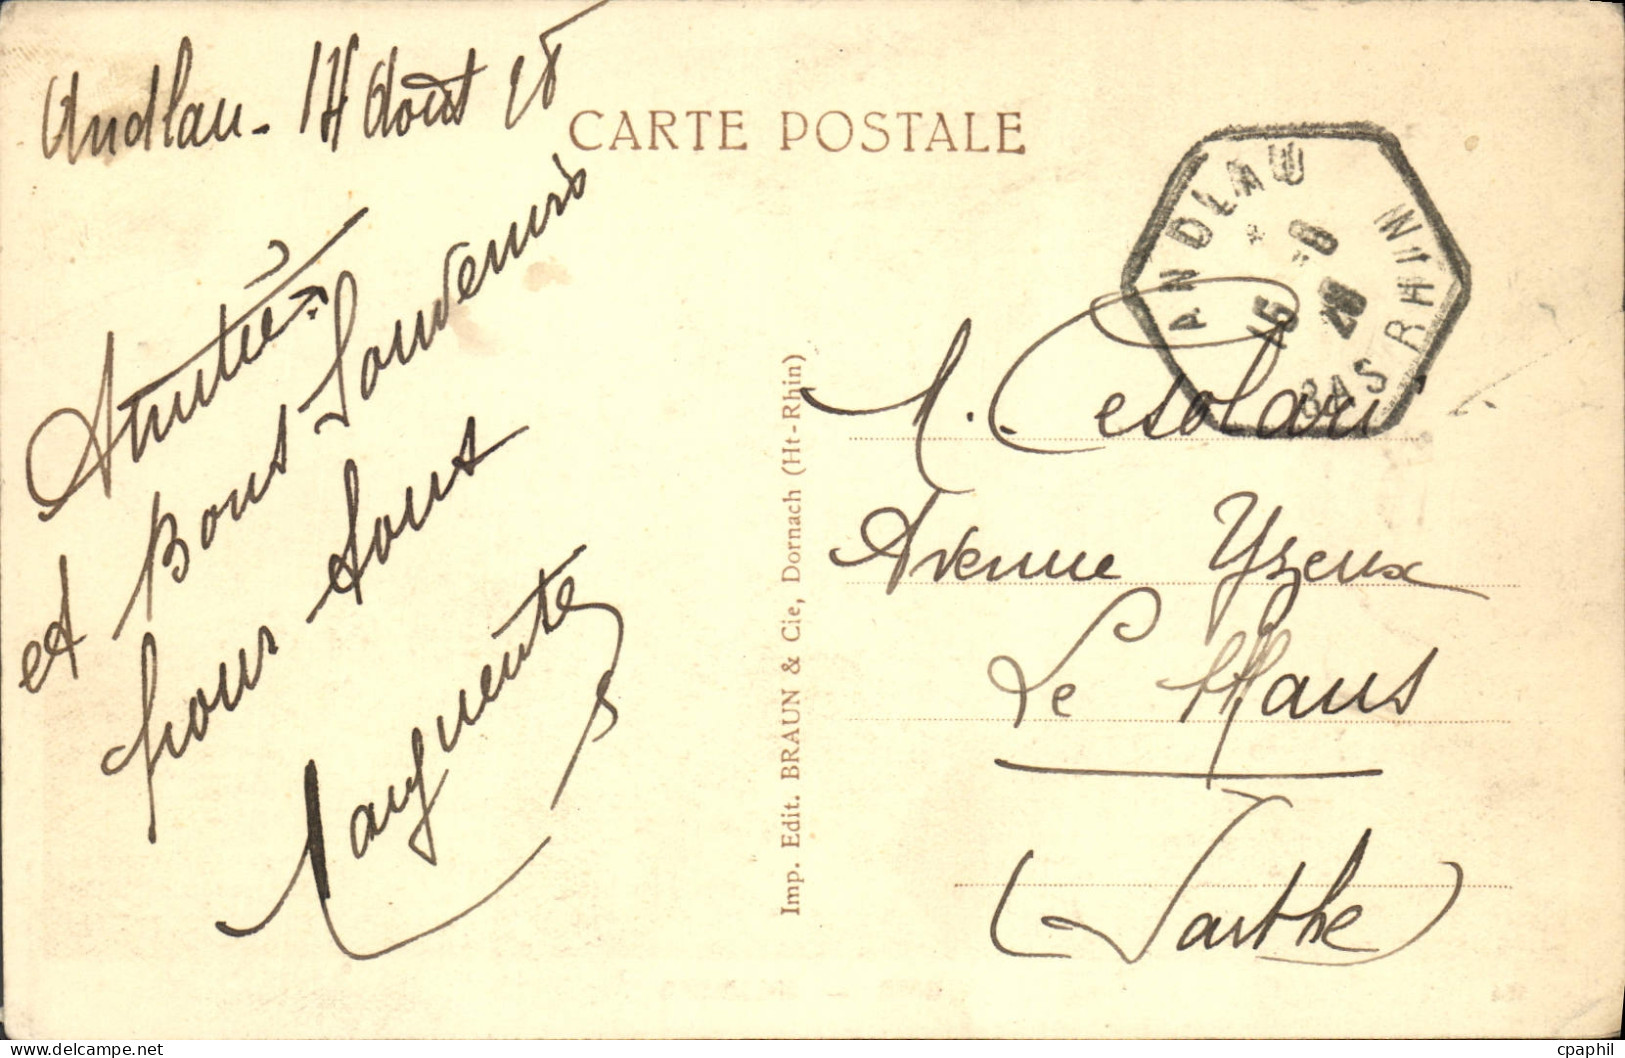 Andlau - 14 Août 28
CARTE POSTALE
ANDLAU
* 15 -8 28
BAS RHIN
Amitiés
et Bons Souvenirs
pour tous
Imp. Edit. BRAUN & Cie, Dornach (Ht-Rhin)
M.
Avenue Yzeux
Le Mans
(Sarthe)
cpaphil